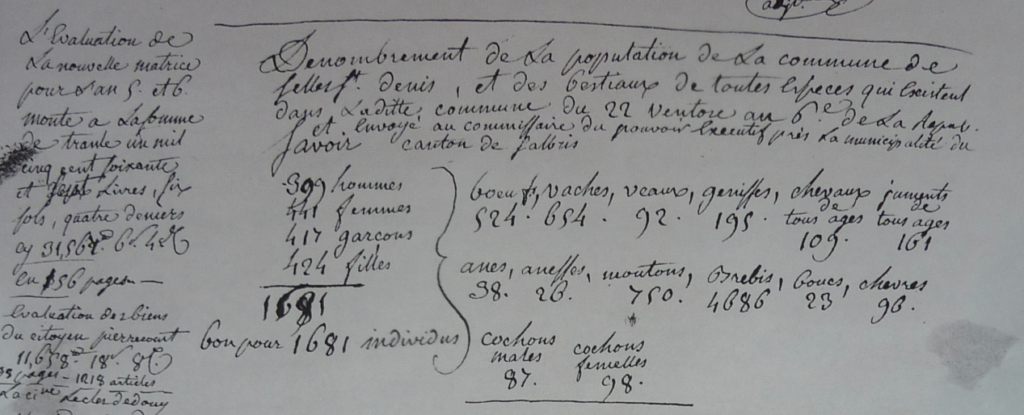 L'Evaluation de
La nouvelle matrice
pour L'an 5. et 6.
monte a La somme
de trante un mil
cinq cent soixante
et Livres, six
sols, quatre deniers
en 156 pages
Evaluation des biens
du citoyen pierrecourt
pages - 1218 articles
Denombrement de La population de La commune de
selles st. denis, et des bestiaux de toutes Especes qui Existent
dans Laditte commune du 22 ventose an 6e. de La Repub.
et Envoyé au commissaire du pouvoir Executif près La municipalité du
Savoir canton de Salbris
399 hommes
441 femmes
417 garcons
424 filles
1681
bon pour 1681 individus
boeufs, vaches, veaux, genisses, chevaux de tous ages, juments de tous ages
524. 654. 92. 195. 109. 161
anes, anesses, moutons, Brebis, boucs, chevres
38. 26. 750. 4686 23 96.
cochons males cochons femelles
87. 98.